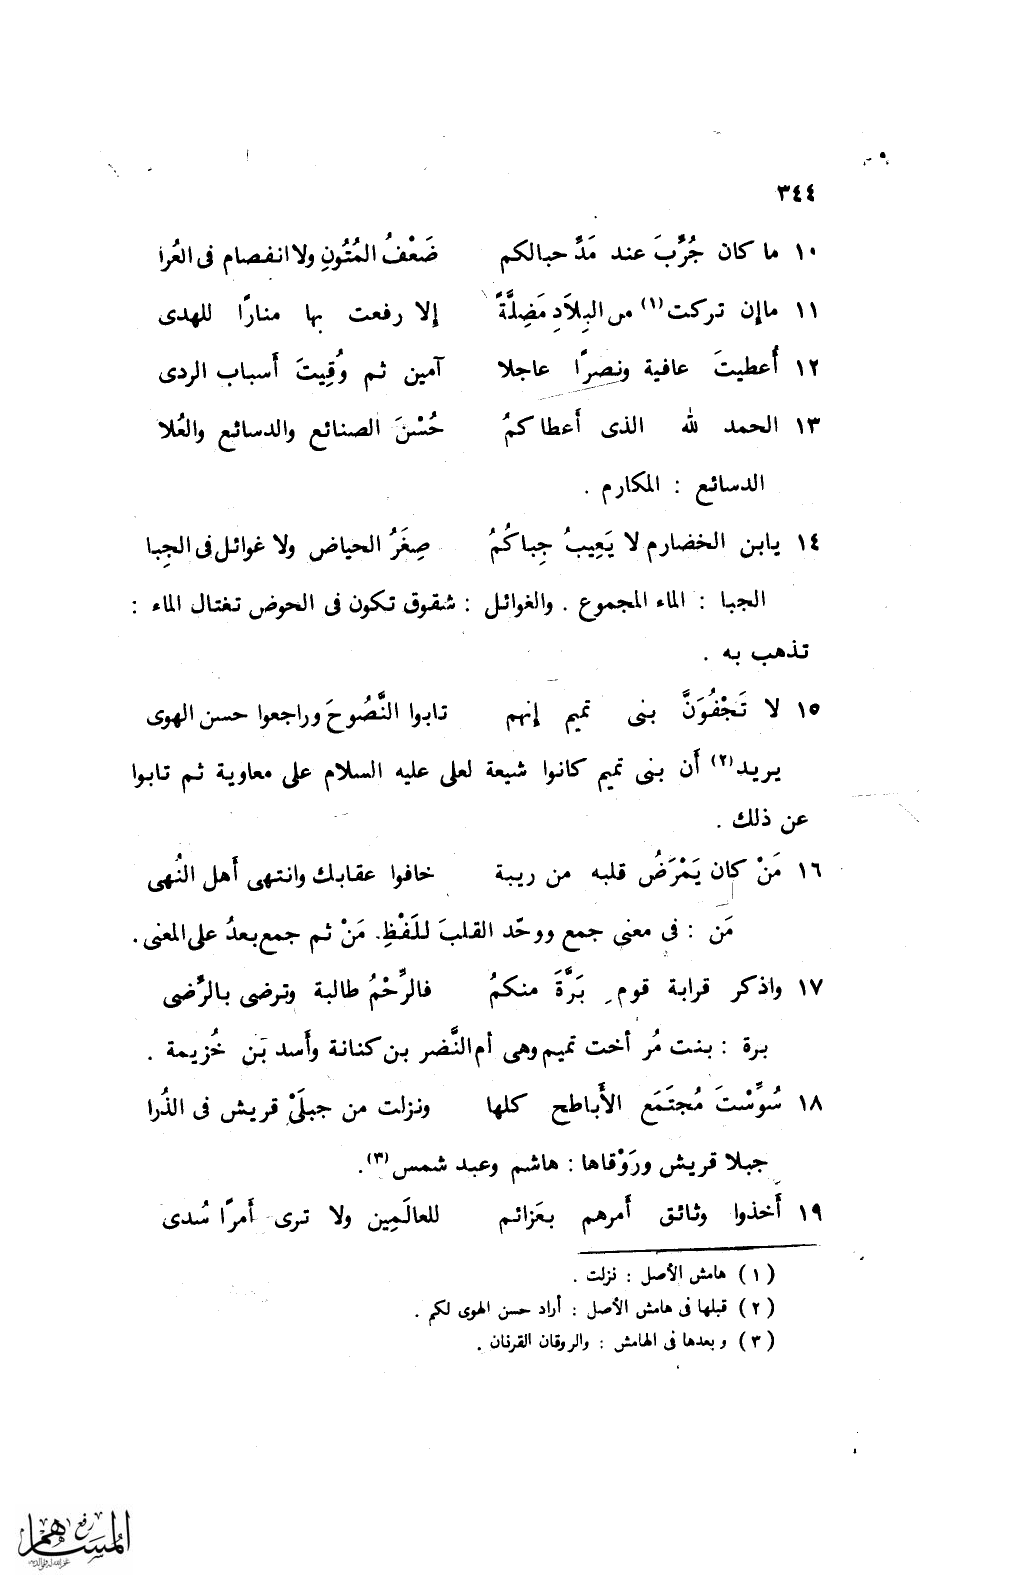 ٣٤٤
١٠ ما كان جُرِّبَ عند مَدِّ حبالكم ضَعْفُ المُتُونِ ولا انفصام فى العُرا
١١ ما إن تركت(١) من البِلاَدِ مَضِلَّةً إلا رفعت بها منارًا للهدى
١٢ أُعطيتَ عافية ونصرًا عاجلا آمين ثم وُقِيتَ أسباب الردى
١٣ الحمد لله الذى أعطاكمُ حُسْنَ الصنائع والدسائع والعُلا
الدسائع : المكارم .
١٤ يابن الخضارم لا يَعِيبُ جِباكُمُ صِغَرُ الحياض ولا غوائل فى الجِبا
الجبا : الماء المجموع . والغوائل : شقوق تكون فى الحوض تغتال الماء :
تذهب به .
١٥ لا تَجْفُوَنَّ بنى تميم إنهم تابوا النَّصُوحَ وراجعوا حسن الهوى
يريد(٢) أن بنى تميم كانوا شيعة لعلى عليه السلام على معاوية ثم تابوا
عن ذلك .
١٦ مَنْ كان يَمْرَضُ قلبه من ريبة خافوا عقابك وانتهى أهل النُهى
مَن : فى معنى جمع ووحّد القلبَ للَفْظِ. مَنْ ثم جمع بعدُ على المعنى .
١٧ واذكر قرابة قوم بَرَّةَ منكمُ فالرِّحْمُ طالبة وترضى بالرِّضى
برة : بنت مُر أخت تميم وهى أم النَّضر بن كنانة وأسد بَن خُزيمة .
١٨ سُوِّسْتَ مُجتَمَع الأَباطح كلها ونزلت من جبلَىْ قريش فى الذُرا
جبلا قريش ورَوْقاها : هاشم وعبد شمس(٣).
١٩ أَخذوا وثائق أَمرهم بعَزائم للعالَمِين ولا ترى أَمرًا سُدى
(١) هامش الأصل : نزلت .
(٢) قبلها فى هامش الأصل : أراد حسن الهوى لكم .
(٣) وبعدها فى الهامش : والروقان القرنان .
رفع
المساهم